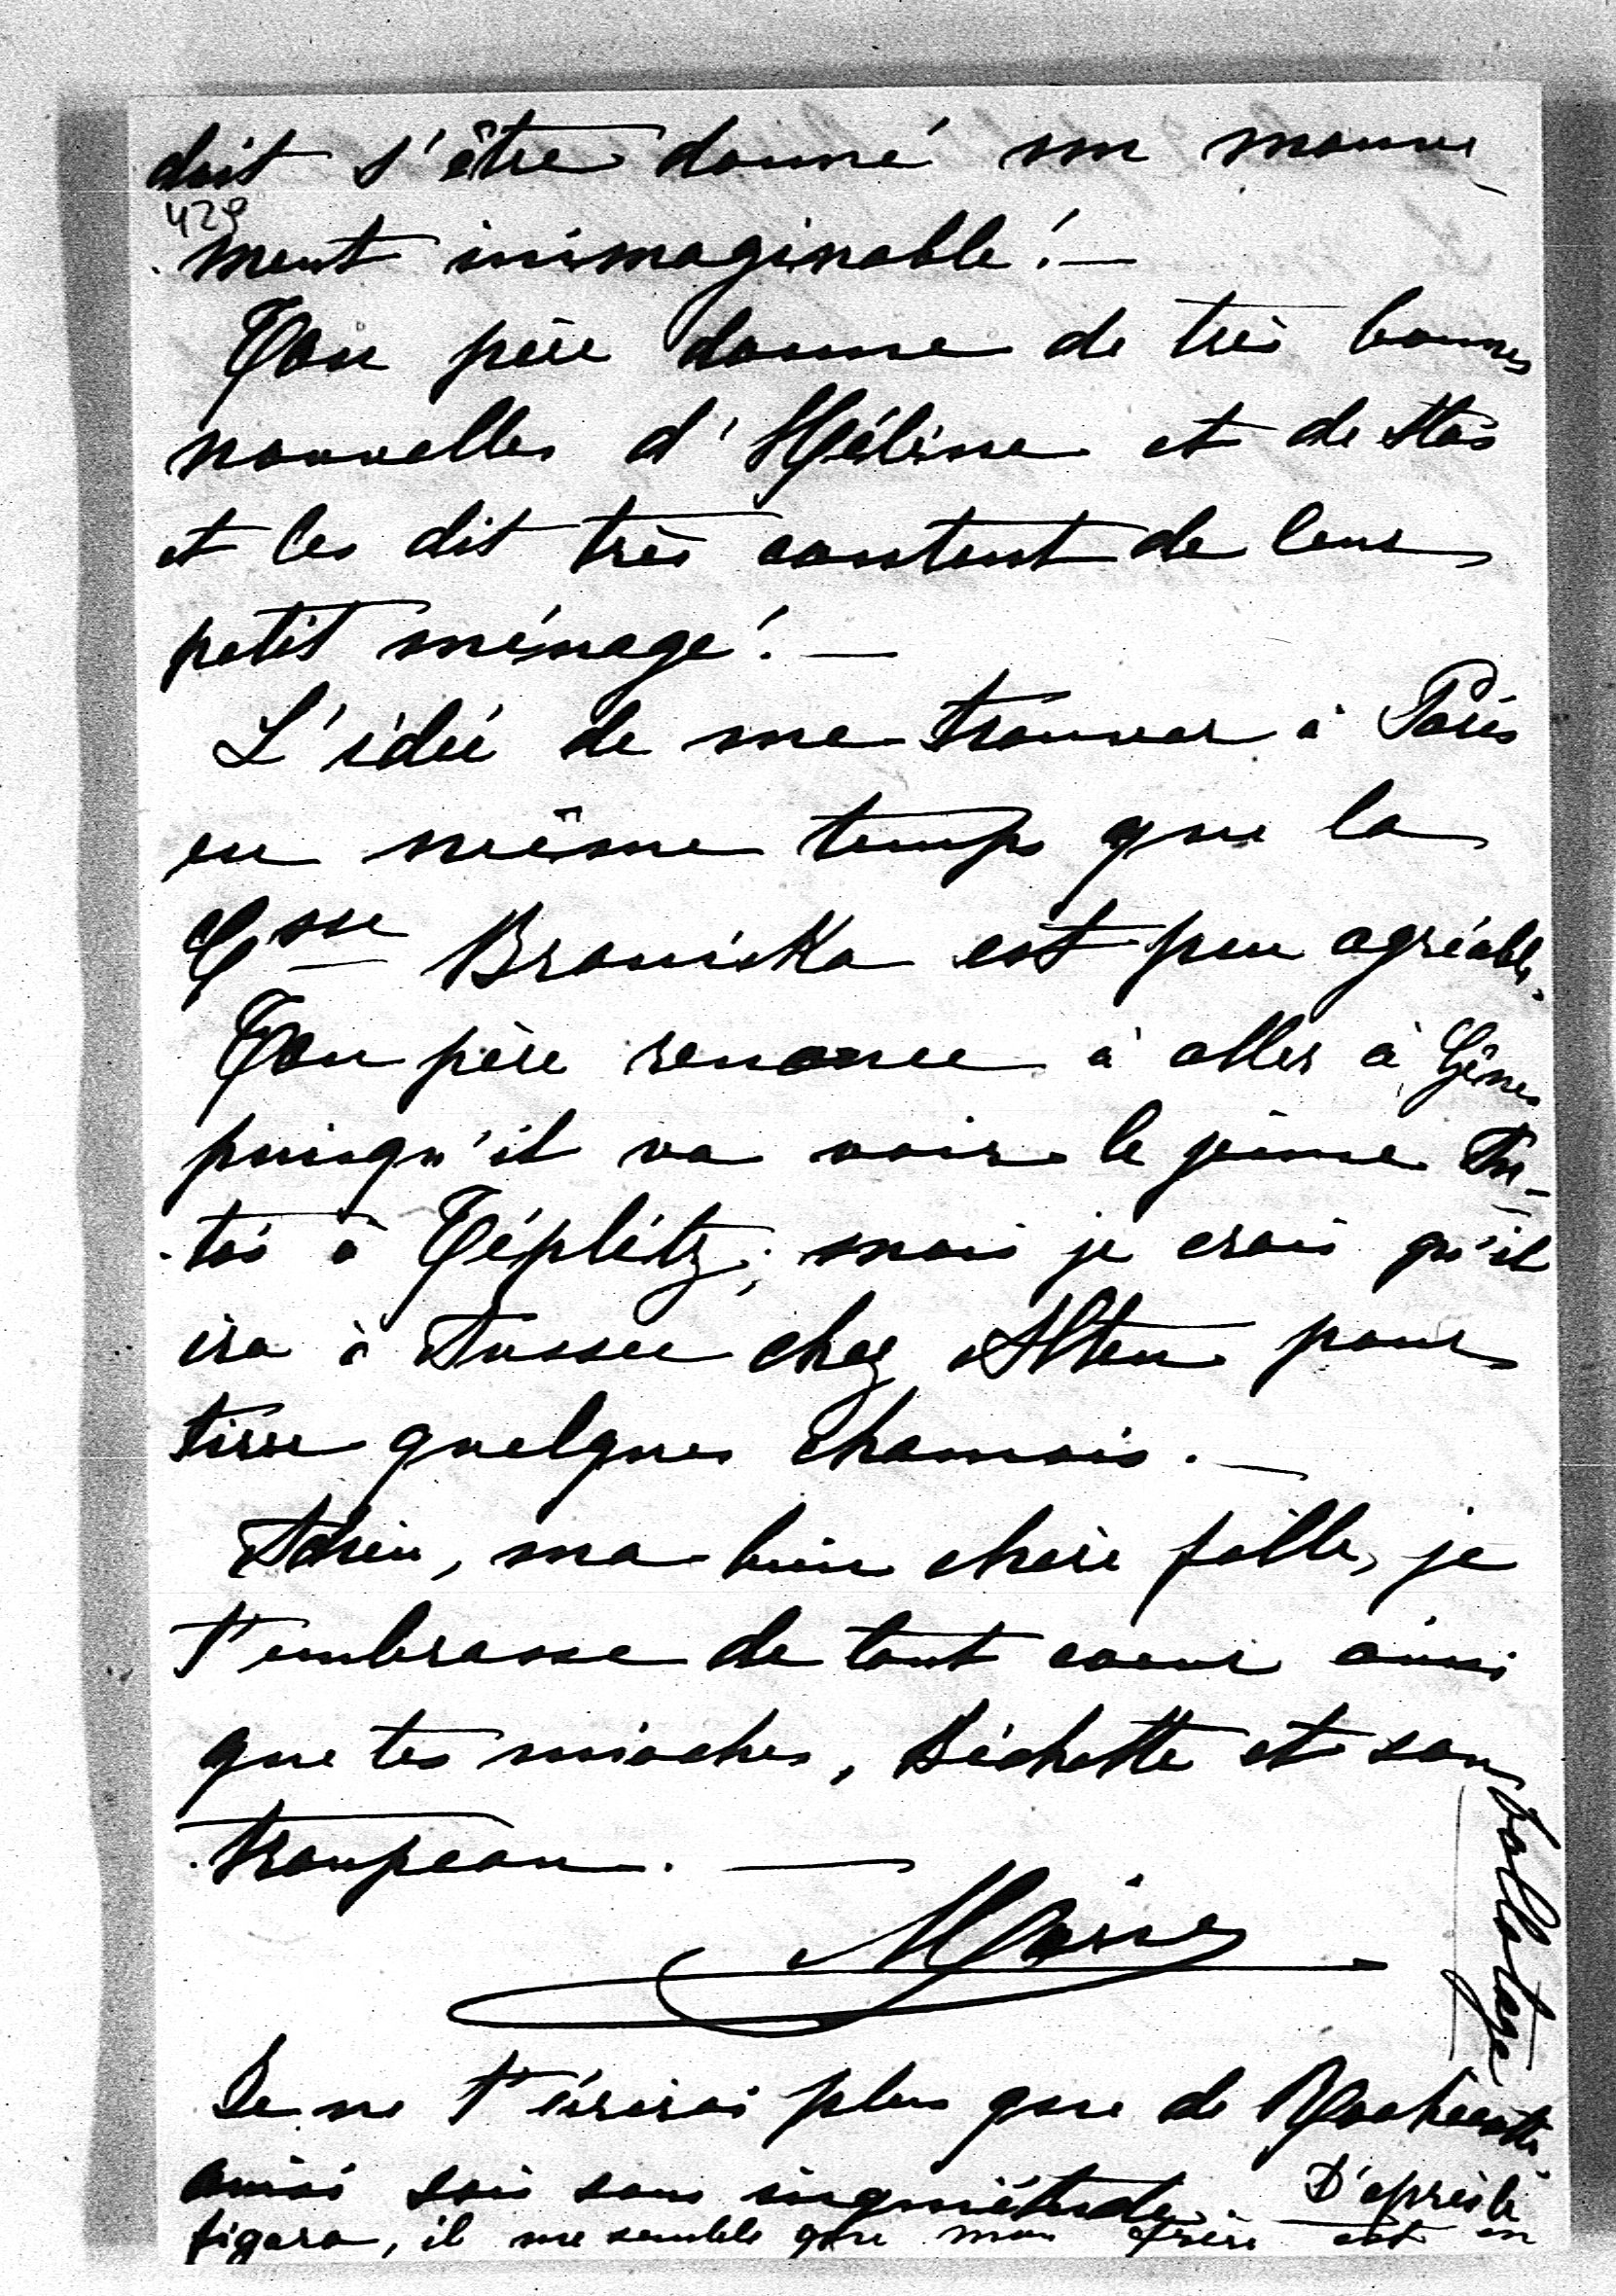 doit s'être donné un mouve
429
ment inimaginable! —
Ton père donne de très bonnes
nouvelles d'Hélène et de Stas
et les dit très content de leur
petit ménage! —
L'idée de me trouver à Paris
en même temps que la
Csse Braniska est peu agréable.
Ton père renonce à aller à Gênes
puisqu'il va voir le jeune An-
-toi à Téplitz; mais je crois qu'il
ira à Aussee chez Alten pour
tirer quelques chamois. —
Adieu, ma bien chère fille, je
t'embrasse de tout coeur ainsi
que tes mioches, Bichette et son
troupeau. —
Marie
Je ne t'écrirai plus que de Rochecotte
ainsi sois sans inquiétude. D'après le
figaro, il me semble que mon frère est en
ballotage